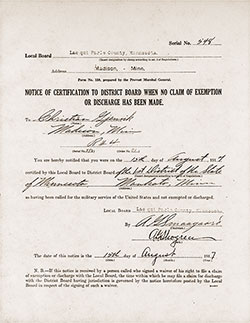 Serial No. 548
Local Board Lac qui Parle County, Minnesota.
Address Madison, - Minn.
Form No. 159, prepared by the Provost Marshal General.
NOTICE OF CERTIFICATION TO DISTRICT BOARD WHEN NO CLAIM OF EXEMPTION
OR DISCHARGE HAS BEEN MADE.
To Christian
Madison, Minn
R # 4
You are hereby notified that you were on the 15th day of August, 1917
certified by this Local Board to District Board of the 1st District of the State
of Minnesota Mankato, Minn
as having been called for the military service of the United States and not exempted or discharged.
LOCAL BOARD Lac qui Parle County, Minnesota.
By
The date of this notice is the 15th day of August 1917
N. B.—If this notice is received by a person called who signed a waiver of his right to file a claim
of exemption or discharge with the Local Board, the time within which he may file a claim for discharge
with the District Board having jurisdiction is governed by the notice heretofore posted by the Local
Board in respect of the signing of such a waiver.